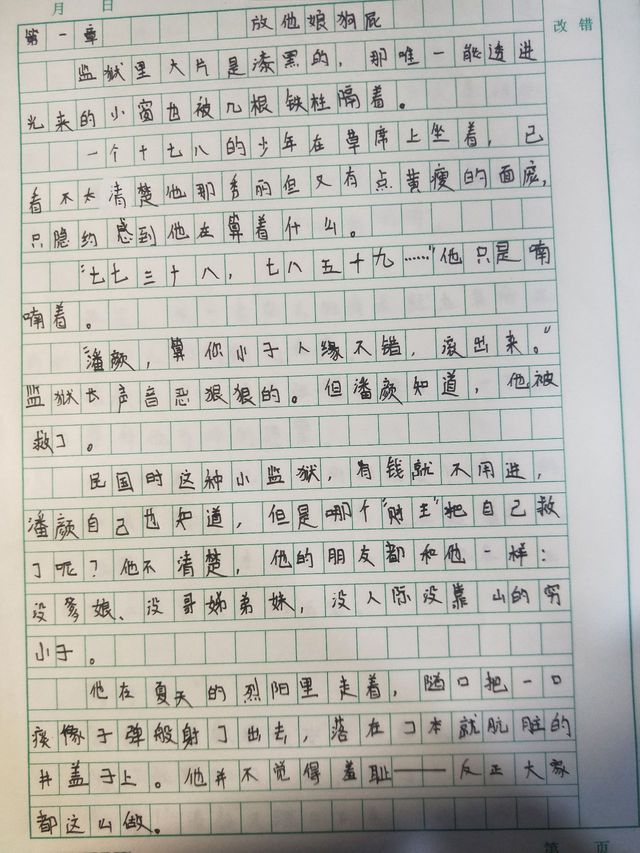 月 日
第一章 放他娘狗屁
改错
监狱里大片是漆黑的，那唯一能透进
光来的小窗也被几根铁柱隔着。
一个十七八的少年在草席上坐着，已
看不太清楚他那秀丽但又有点黄瘦的面庞，
只隐约感到他在算着什么。
“七七三十八，七八五十九……”他只是喃
喃着。
“潘颜，算你小子人缘不错，滚出来。”
监狱长声音恶狠狠的。但潘颜知道，他被
救了。
民国时这种小监狱，有钱就不用进，
潘颜自己也知道，但是哪个“财主”把自己救
了呢？他不清楚，他的朋友都和他一样：
没爹娘、没哥姊弟妹，没人际没靠山的穷
小子。
他在夏天的烈阳里走着，随口把一口
痰像子弹般射了出去，落在了本就肮脏的
井盖子上。他并不觉得羞耻——反正大家
都这么做。
第 页